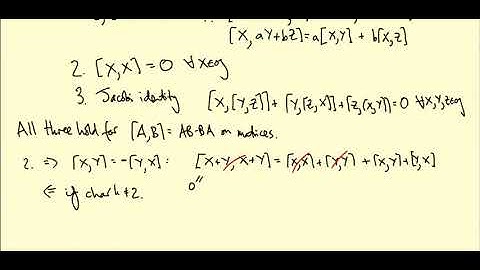 [X, aY+bZ] = a[X,Y] + b[X,Z]
2. [X,X] = 0 ∀X∈g
3. Jacobi identity [X,[Y,Z]] + [Y,[Z,X]] + [Z,[X,Y]] = 0 ∀X,Y,Z∈g
All three hold for [A,B] = AB-BA on matrices.
2. ⇒ [X,Y] = -[Y,X] : [X+Y, X+Y] = [X,X] + [Y,Y] + [X,Y] + [Y,X]
⇐ if char k ≠ 2. 0"